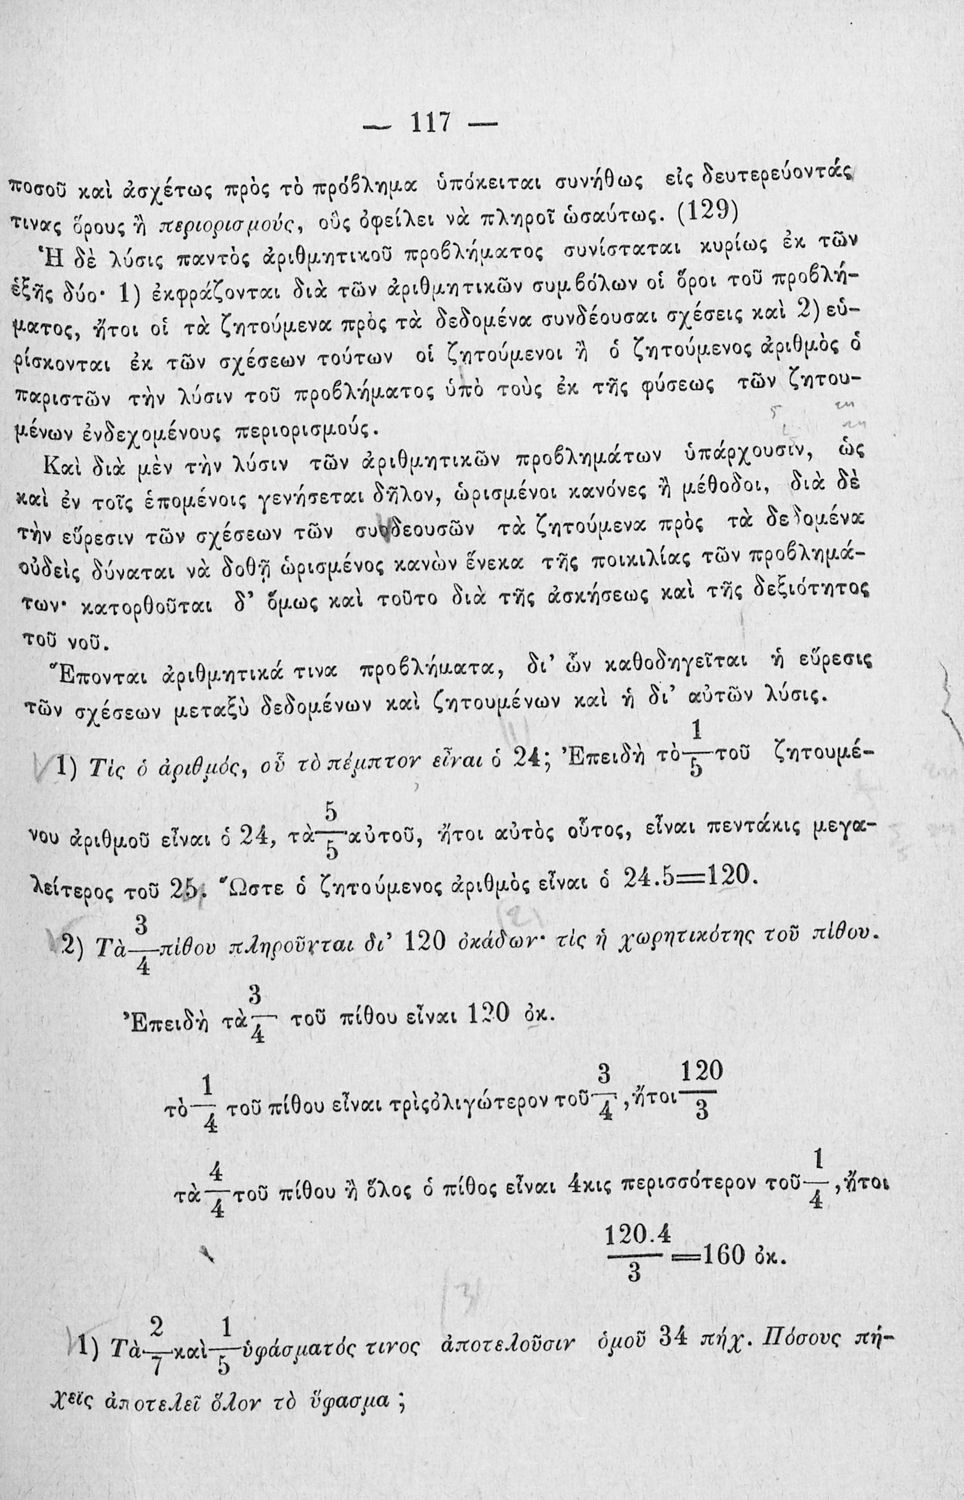 — 117 —
ποσοῦ καὶ ἀσχέτως πρὸς τὸ πρόβλημα ὑπόκειται συνήθως εἰς δευτερεύοντάς
τινας ὅρους ἢ περιορισμούς, οὓς ὀφείλει νὰ πληροῖ ὡσαύτως. (129)
Ἡ δὲ λύσις παντὸς ἀριθμητικοῦ προβλήματος συνίσταται κυρίως ἐκ τῶν
ἑξῆς δύο· 1) ἐκφράζονται διὰ τῶν ἀριθμητικῶν συμβόλων οἱ ὅροι τοῦ προβλή-
ματος, ἤτοι οἱ τὰ ζητούμενα πρὸς τὰ δεδομένα συνδέουσαι σχέσεις καὶ 2) εὑ-
ρίσκονται ἐκ τῶν σχέσεων τούτων οἱ ζητούμενοι ἢ ὁ ζητούμενος ἀριθμὸς ὁ
παριστῶν τὴν λύσιν τοῦ προβλήματος ὑπὸ τοὺς ἐκ τῆς φύσεως τῶν ζητου-
μένων ἐνδεχομένους περιορισμούς.
Καὶ διὰ μὲν τὴν λύσιν τῶν ἀριθμητικῶν προβλημάτων ὑπάρχουσιν, ὡς
καὶ ἐν τοῖς ἑπομένοις γενήσεται δῆλον, ὡρισμένοι κανόνες ἢ μέθοδοι, διὰ δὲ
τὴν εὕρεσιν τῶν σχέσεων τῶν συνδεουσῶν τὰ ζητούμενα πρὸς τὰ δεδομένα
οὐδεὶς δύναται νὰ δοθῇ ὡρισμένος κανὼν ἕνεκα τῆς ποικιλίας τῶν προβλημά-
των· κατορθοῦται δ' ὅμως καὶ τοῦτο διὰ τῆς ἀσκήσεως καὶ τῆς δεξιότητος
τοῦ νοῦ.
Ἕπονται ἀριθμητικά τινα προβλήματα, δι' ὧν καθοδηγεῖται ἡ εὕρεσις
τῶν σχέσεων μεταξὺ δεδομένων καὶ ζητουμένων καὶ ἡ δι' αὐτῶν λύσις.
1) Τίς ὁ ἀριθμός, οὗ τὸ πέμπτον εἶναι ὁ 24; Ἐπειδὴ τὸ 1/5 τοῦ ζητουμέ-
νου ἀριθμοῦ εἶναι ὁ 24, τὰ 5/5 αὐτοῦ, ἤτοι αὐτὸς οὗτος, εἶναι πεντάκις μεγα-
λείτερος τοῦ 25. Ὥστε ὁ ζητούμενος ἀριθμὸς εἶναι ὁ 24.5=120.
2) Τὰ 3/4 πίθου πληροῦνται δι' 120 ὀκάδων· τίς ἡ χωρητικότης τοῦ πίθου.
Ἐπειδὴ τὰ 3/4 τοῦ πίθου εἶναι 120 ὀκ.
τὸ 1/4 τοῦ πίθου εἶναι τρὶςὀλιγώτερον τοῦ 3/4, ἤτοι 120/3
τὰ 4/4 τοῦ πίθου ἢ ὅλος ὁ πίθος εἶναι 4κις περισσότερον τοῦ 1/4, ἤτοι
120.4/3 =160 ὀκ.
1) Τὰ 2/7 καὶ 1/5 ὑφάσματός τινος ἀποτελοῦσιν ὁμοῦ 34 πήχ. Πόσους πή-
χεις ἀποτελεῖ ὅλον τὸ ὕφασμα ;